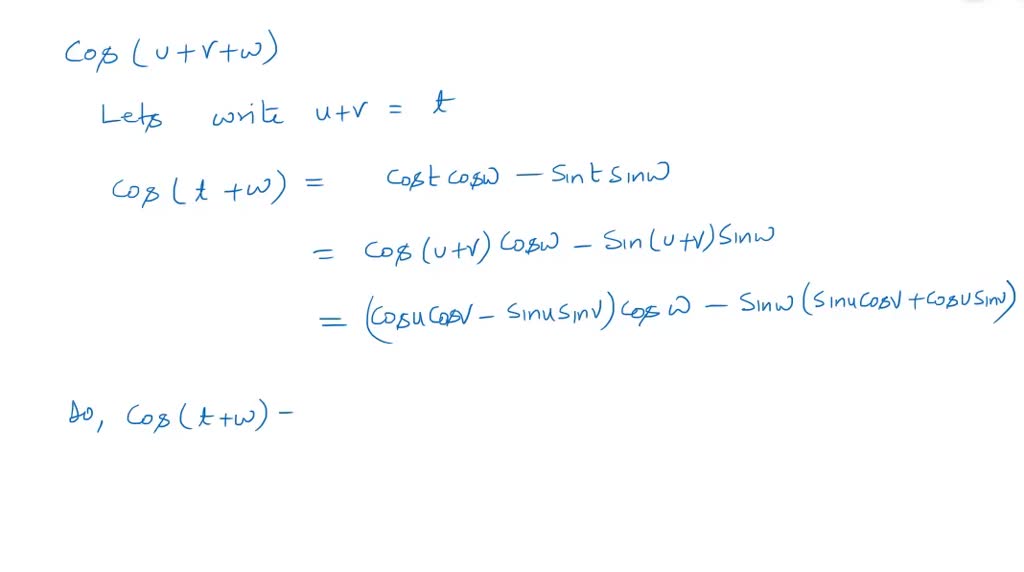 Cos (u+v+w)
Lets write u+v = t
Cos (t +w) = Cost Cosw – Sint Sinw
= Cos (u+v) Cosw – Sin (u+v) Sinw
= (Cosu Cosv – Sinu Sinv) Cos w – Sinw (Sinu Cosv + Cosu Sinv)
So, Cos (t+w) –